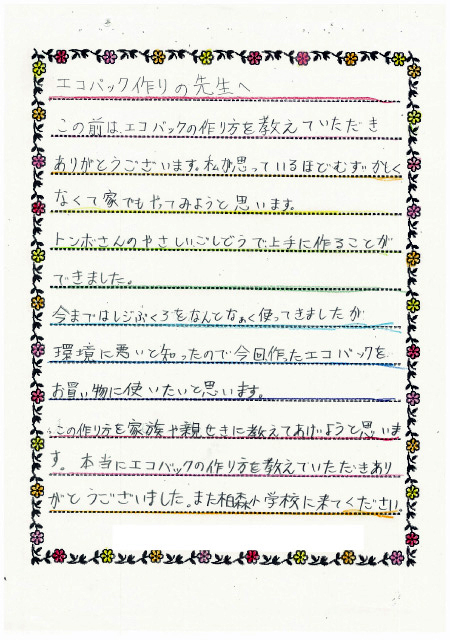 エコバック作りの先生へ
この前は、エコバックの作り方を教えていただき
ありがとうございます。私が思っているほどむずかしく
なくて家でもやってみようと思います。
トンボさんのやさしいごしどうで上手に作ることが
できました。
今まではレジぶくろをなんとなぁく使ってきましたが
環境に悪いと知ったので今回作ったエコバックを
お買い物に使いたいと思います。
この作り方を家族や親せきに教えてあげようと思いま
す。本当にエコバックの作り方を教えていただきあり
がとうございました。また柏森小学校に来てください。